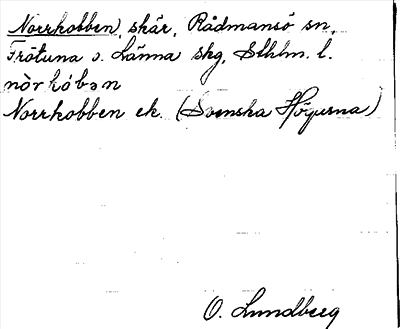 Norrkobben, skär, Rådmansö sn,
Frötuna o. Länna skg, Sthlm. l.
nòrkób̥ən
Norrkobben ek. (Svenska Högarna)
O. Lundberg